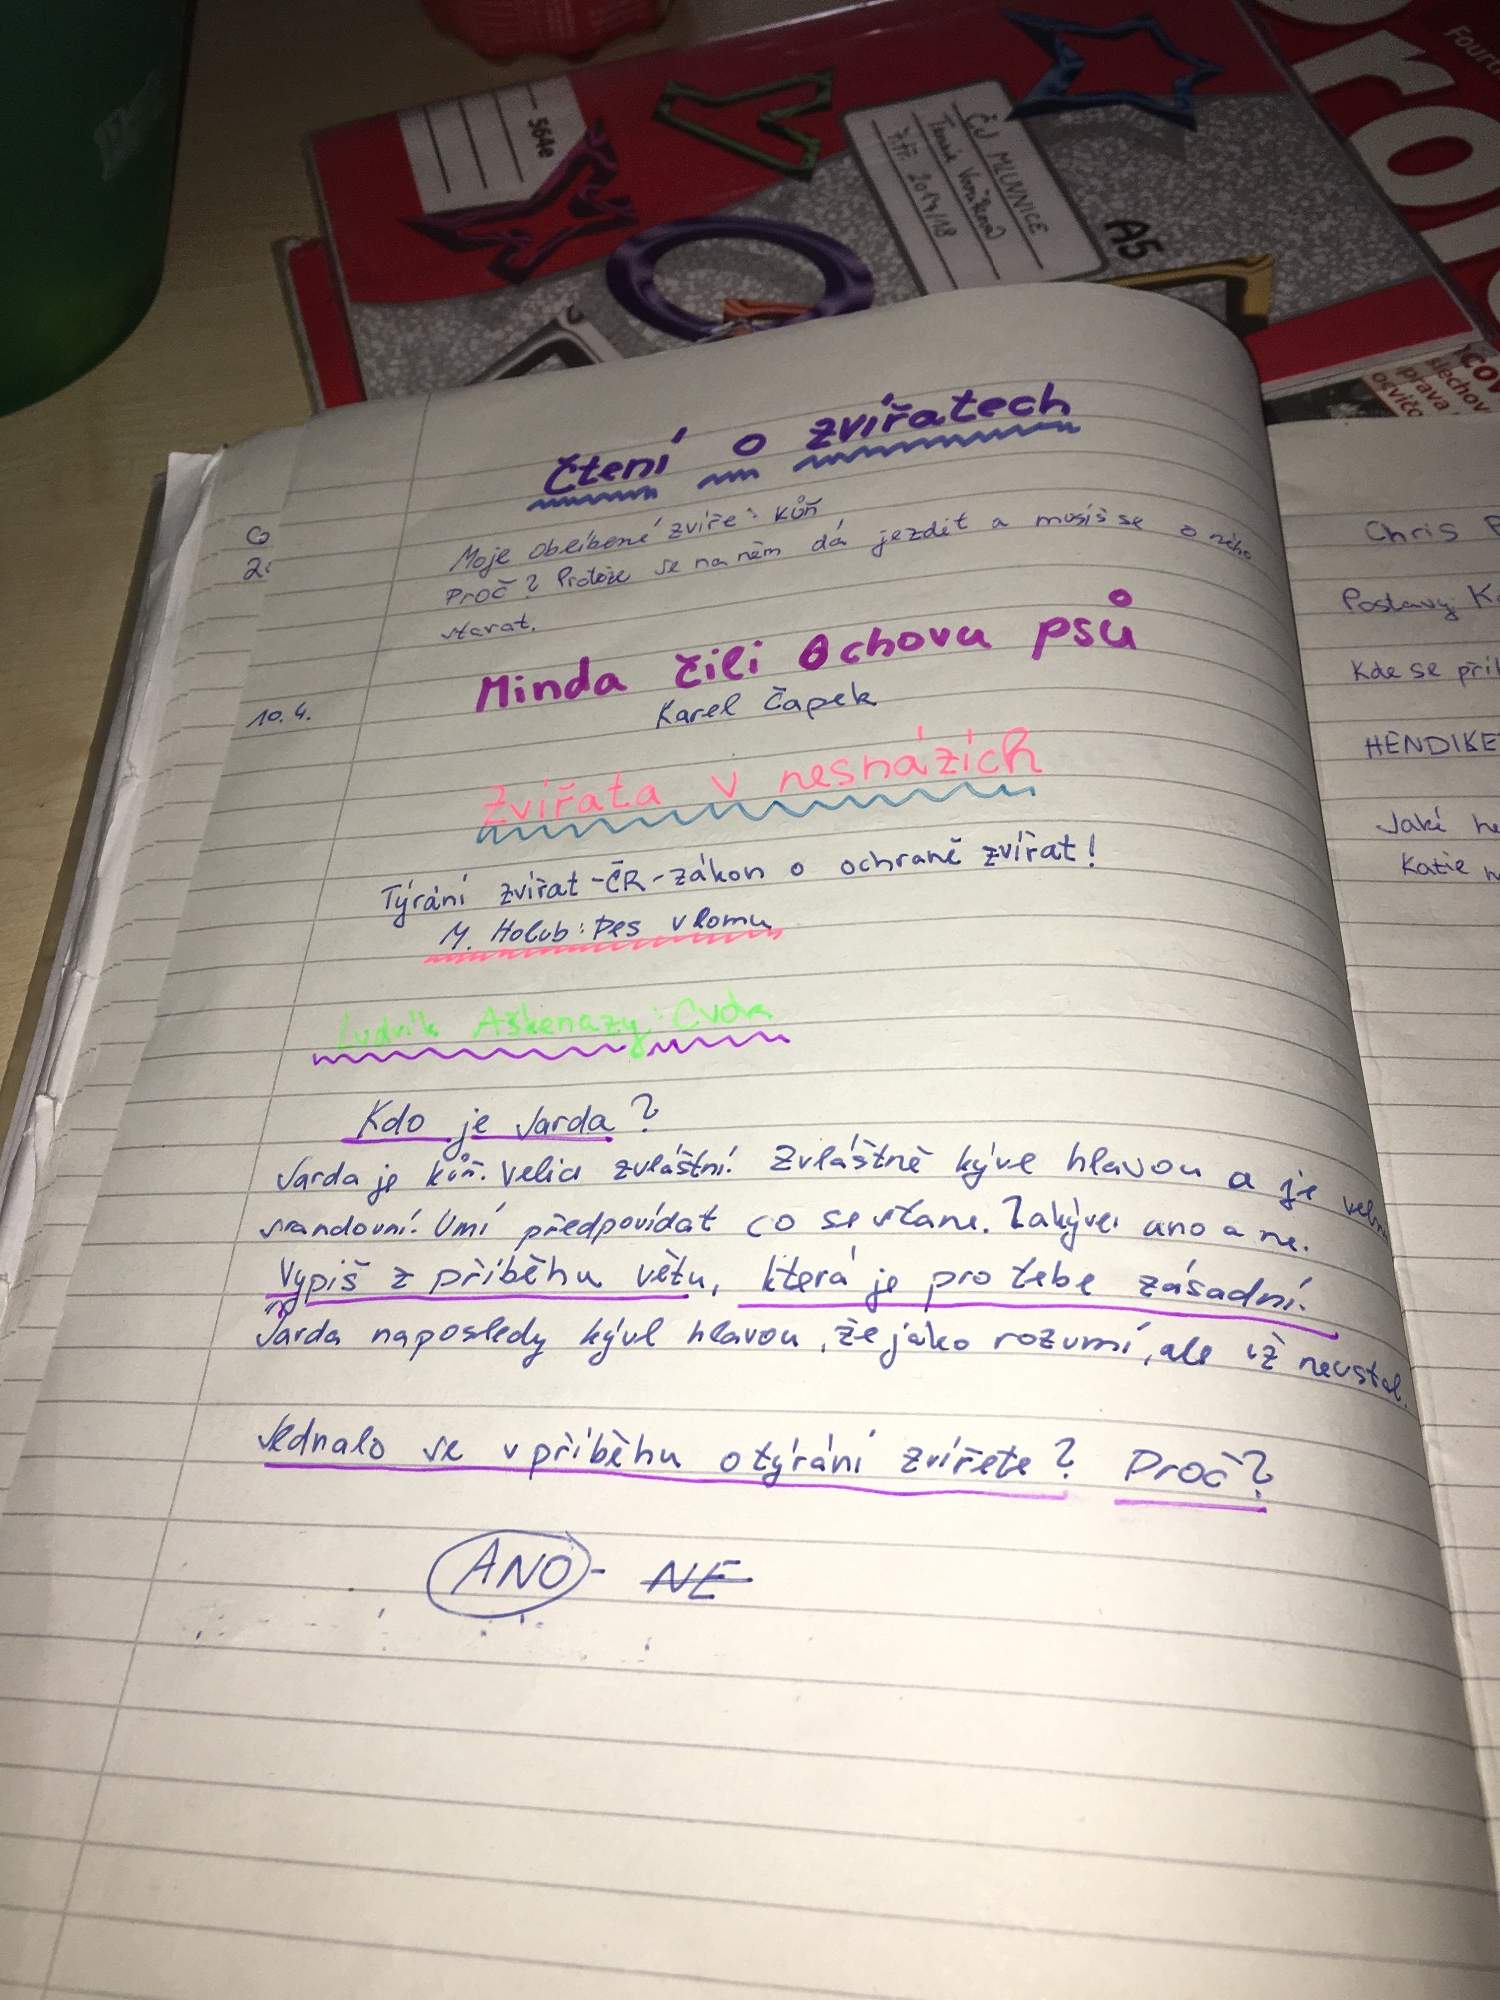 564e
ČJ MLUVNICE
7.tř. 2017/18
A5
Fourth
slechov
prava
osvičo
Čtení o zvířatech
Moje oblíbené zvíře: kůň
Proč? Protože se na něm dá jezdit a musíš se o něho
starat.
Minda čili Ochova psů
10.4.
Karel Čapek
Zvířata v nesnázích
Týrání zvířat-ČR-zákon o ochraně zvířat!
M. Holub: Pes v lomu
Ludvík Aškenazy: Cvda
Kdo je Jarda?
Jarda je kůň. Velicí zvláštní. Zvláštně kývl hlavou a je velmi
srandovní. Umí předpovídat co se stane. Zakývei ano a ne.
Vypiš z příběhu větu, která je pro tebe zásadní.
Jarda naposledy kývl hlavou, že jako rozumí, ale už neustal.
Jednalo se v příběhu o týrání zvířete? Proč?
ANO - NE
Chris
Postavy:
Kde se příb
HENDIKE
Jaké
Katie